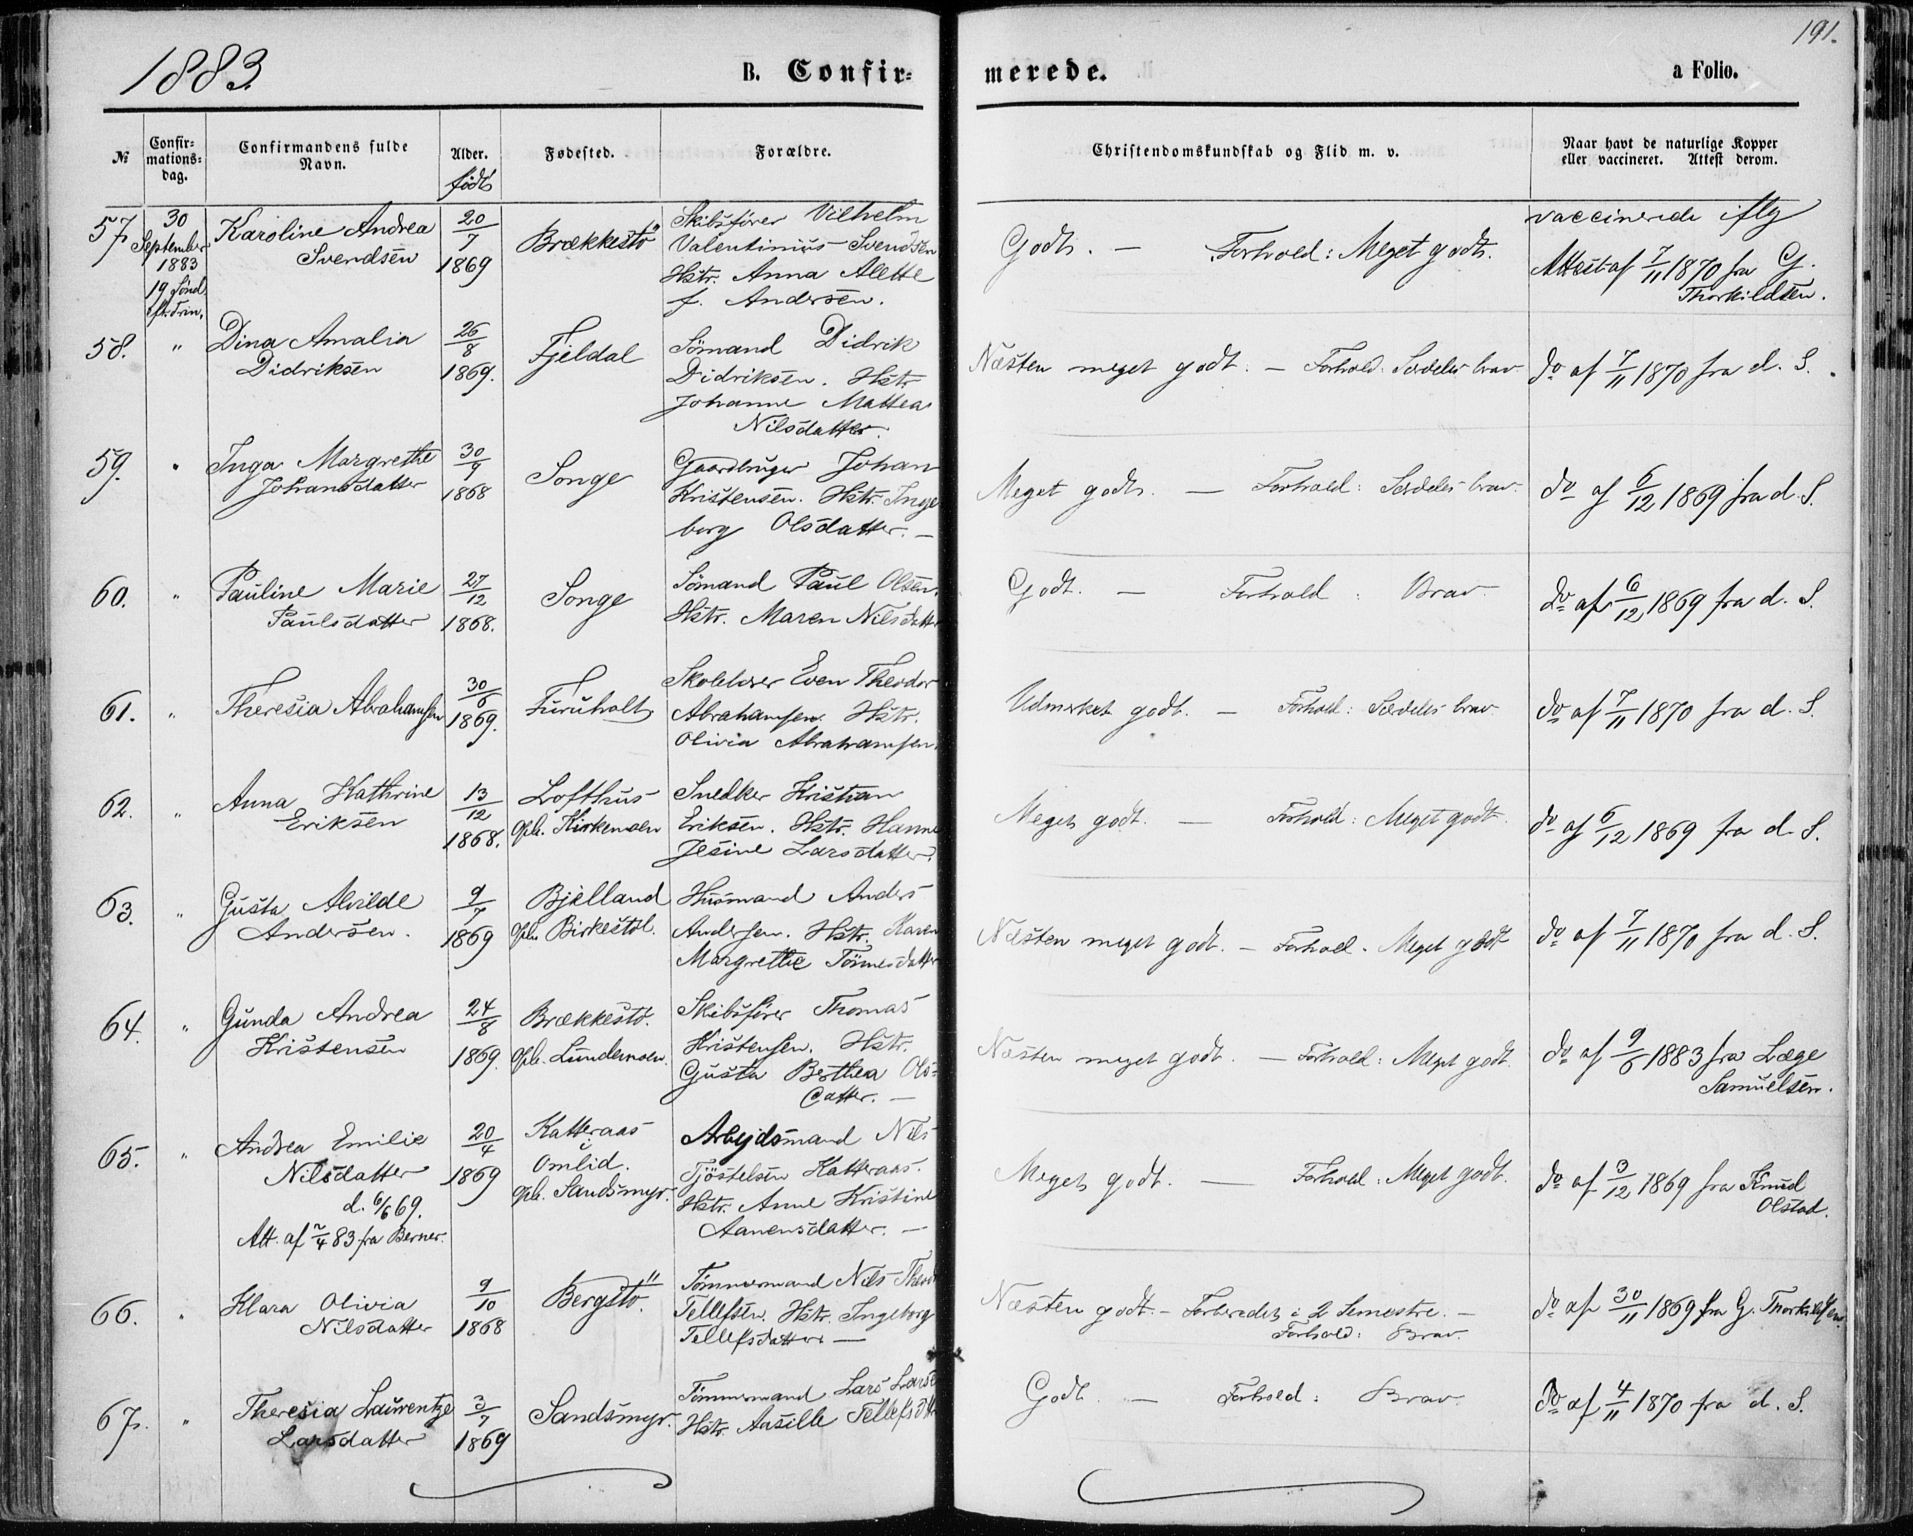 191.
1883.
B. Confir=
merede.
a Folio.
№
Confir=
mations=
dag.
Confirmandens fulde
Navn.
Alder.
født
Fødested.
Forældre.
Christendomskundskab og Flid m. v.
Naar havt de naturlige Kopper
eller vaccineret. Attest derom.
57.
30
September
1883
19 Sønd.
eft. Trin.
Karoline Andrea
Svendsen
20/7
1869
Brækkestö
Skibsfører Vilhelm
Valentinius Svendsen
Hstr. Anna Alette
f. Andersen.
Godt. — Forhold: Meget godt.
vaccinerede iflg
Attest af 7/11 1870 fra G.
Thorkildsen.
58.
"
Dina Amalia
Didriksen
26/8
1869.
Fjeldal
Sömand Didrik
Didriksen. Hstr.
Johanne Mattea
Nilsdatter.
Næsten meget godt. — Forhold: Særdeles brav
do af 7/11 1870 fra d. S.
59.
"
Inga Margrethe
Johansdatter
30/9
1868
Songe
Gaardbruger Johan
Kristensen. Hstr. Inge
borg Olsdatter. —
Meget godt. — Forhold: Særdeles brav.
do af 6/12 1869 fra d. S.
60.
"
Pauline Marie
Paulsdatter
27/12
1868.
Songe
Sömand Paul Olsen.
Hstr. Maren Nilsdatter
Godt. — Forhold: Brav.
do af 6/12 1869 fra d. S.
61.
"
Theresia Abrahamsen
30/6
1869.
Furuholt
Skolelærer Even Theodor
Abrahamsen. Hstr.
Olivia Abrahamsen.
Udmerket godt. — Forhold: Særdeles brav.
do af 7/11 1870 fra d. S.
62.
"
Anna Kathrine
Eriksen
13/12
1868.
Lofthus
Oph. Kirkemoen
Snedker Kristian
Eriksen. Hstr. Hanne
Jesine Larsdatter.
Meget godt. — Forhold: Meget godt.
do af 6/12 1869 fra d. S.
63.
"
Gusta Alvilde
Andersen.
9/7
1869
Bjelland
Oph. Birkestöl.
Husmand Anders
Andersen. Hstr. Karen
Margrethe Tönnesdatter
Næsten meget godt. — Forhold. Meget godt
do af 7/11 1870 fra d. S.
64.
"
Gunda Andrea
Kristensen
24/8
1869.
Brækkestö.
Oph. Lundemoen.
Skibsfører Thomas
Kristensen. Hstr.
Gusta Berthea Ols=
datter. —
Næsten meget godt. — Forhold: Meget godt.
do af 9/6 1883 fra Læge
Samuelsen.
65.
"
Andrea Emilie
Nilsdatter
d. 6/6 69.
Att. af 2/4 83 fra Berner.
20/4
1869
Katteraas
i
Omlid.
Oph. Sandsmyr.
Arbejdsmand Nils
Tjöstelsen Katteraas.
Hstr. Anne Kristine
Aanensdatter. —
Meget godt. — Forhold: Meget godt.
do af 3/12 1869 fra Knud
Olstad.
66.
"
Klara Olivia
Nilsdatter
9/10
1868
Bergstö.
Tömmermand Nils Theod
Tellefsen. Hstr. Ingeborg
Tellefsdatter —
Næsten godt. — Forberedet i 2 Semestre. —
Forhold: Brav.
do af 30/11 1869 fra G. Thorkildsen.
67.
"
Theresia Laurentze
Larsdatter
3/7
1869
Sandsmyr.
Tömmermand Lars Larse
Hstr. Aasille Tellefsdtr
Godt. — Forhold: Brav.
Do af 4/11 1870 fra d. S.